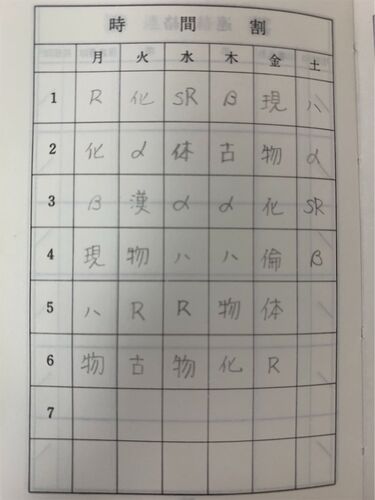 時間割
月 火 水 木 金 土
1 R 化 SR β 現 ハ
2 化 α 体 古 物 α
3 β 漢 α α 化 SR
4 現 物 ハ ハ 倫 β
5 ハ R R 物 体
6 物 古 物 化 R
7